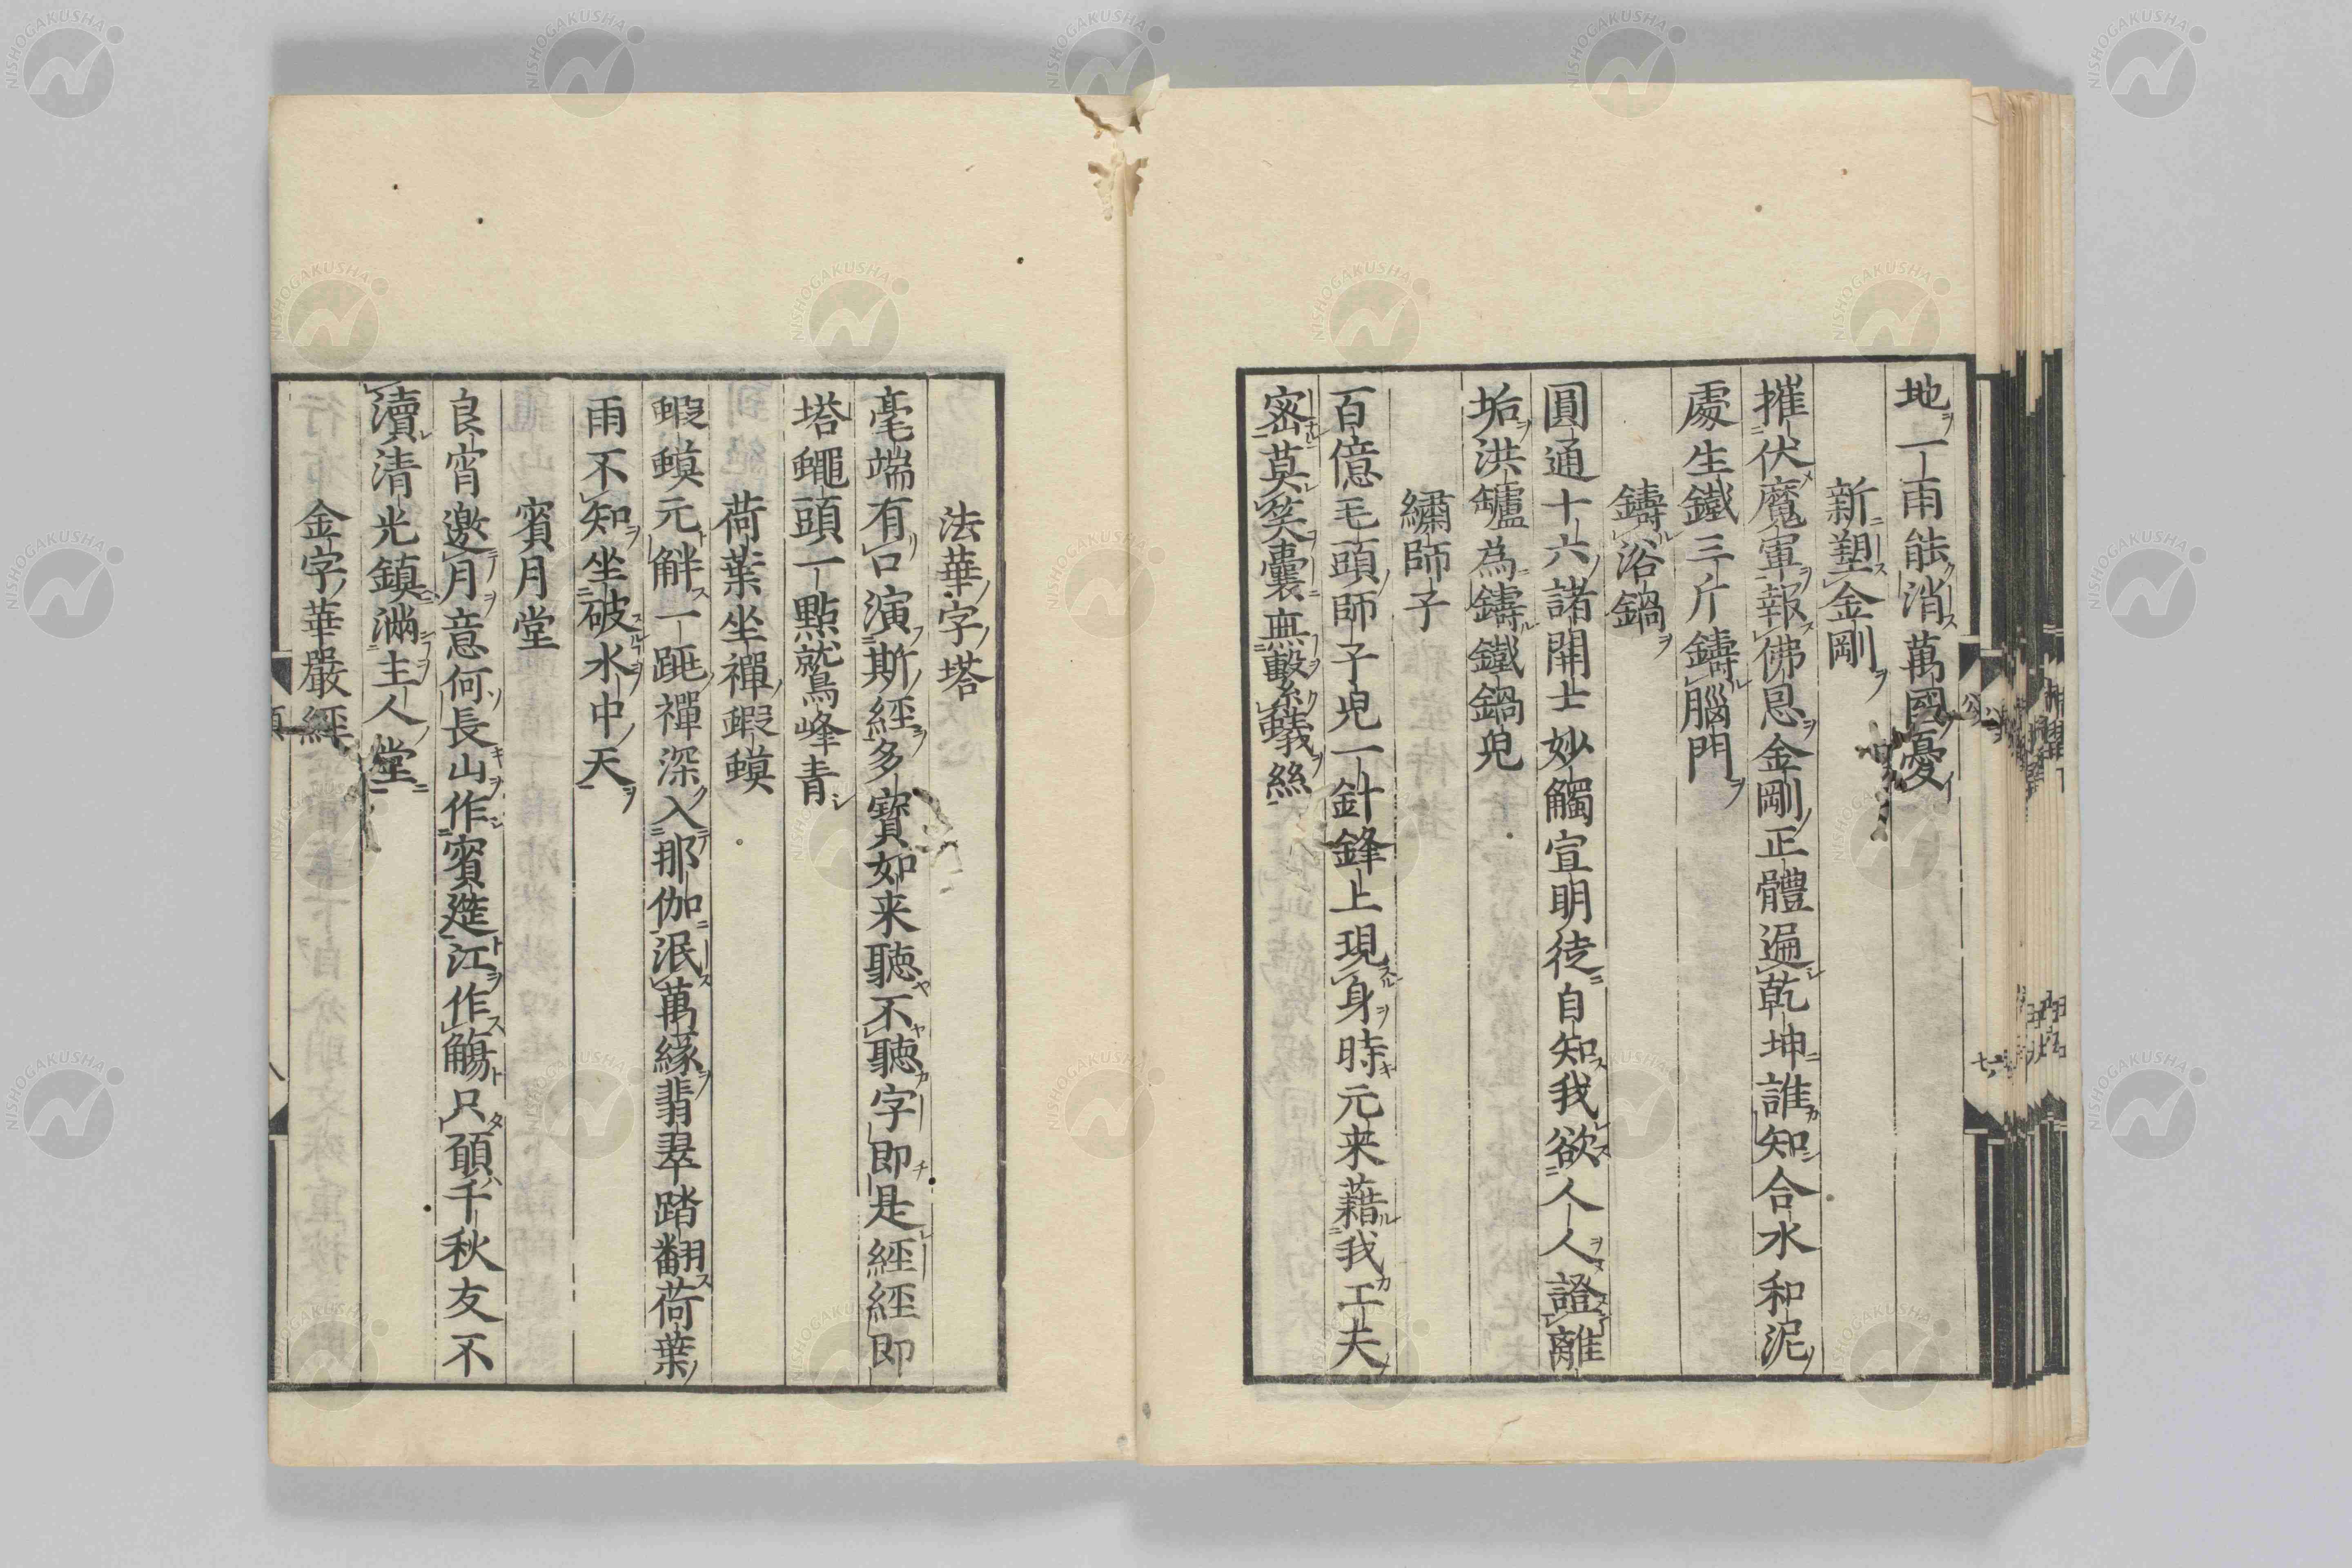 地一雨能消萬國憂
新塑金剛
摧伏魔軍報佛恩金剛正體遍乾坤誰知合水和泥
處生鐵三斤鑄腦門
鑄浴鍋
圓通十六諸開士妙觸宣明徒自知我欲人人證離
垢洪鑪為鑄鐵鍋皃
繡師子
百億毛頭師子皃一針鋒上現身時元来藉我工夫
密莫笑囊無繫蟻絲
法華字塔
毫端有口演斯經多寶如来聽不聽字即是經經即
塔蠅頭一點鷲峰青
荷葉坐禪蝦蟆
蝦蟆元解一跳禪深入那伽泯萬緣翡翠踏翻荷葉
雨不知坐破水中天
賓月堂
良宵邀月意何長山作賓筵江作觴只願千秋友不
瀆清光鎮滿主人堂
金字華嚴經